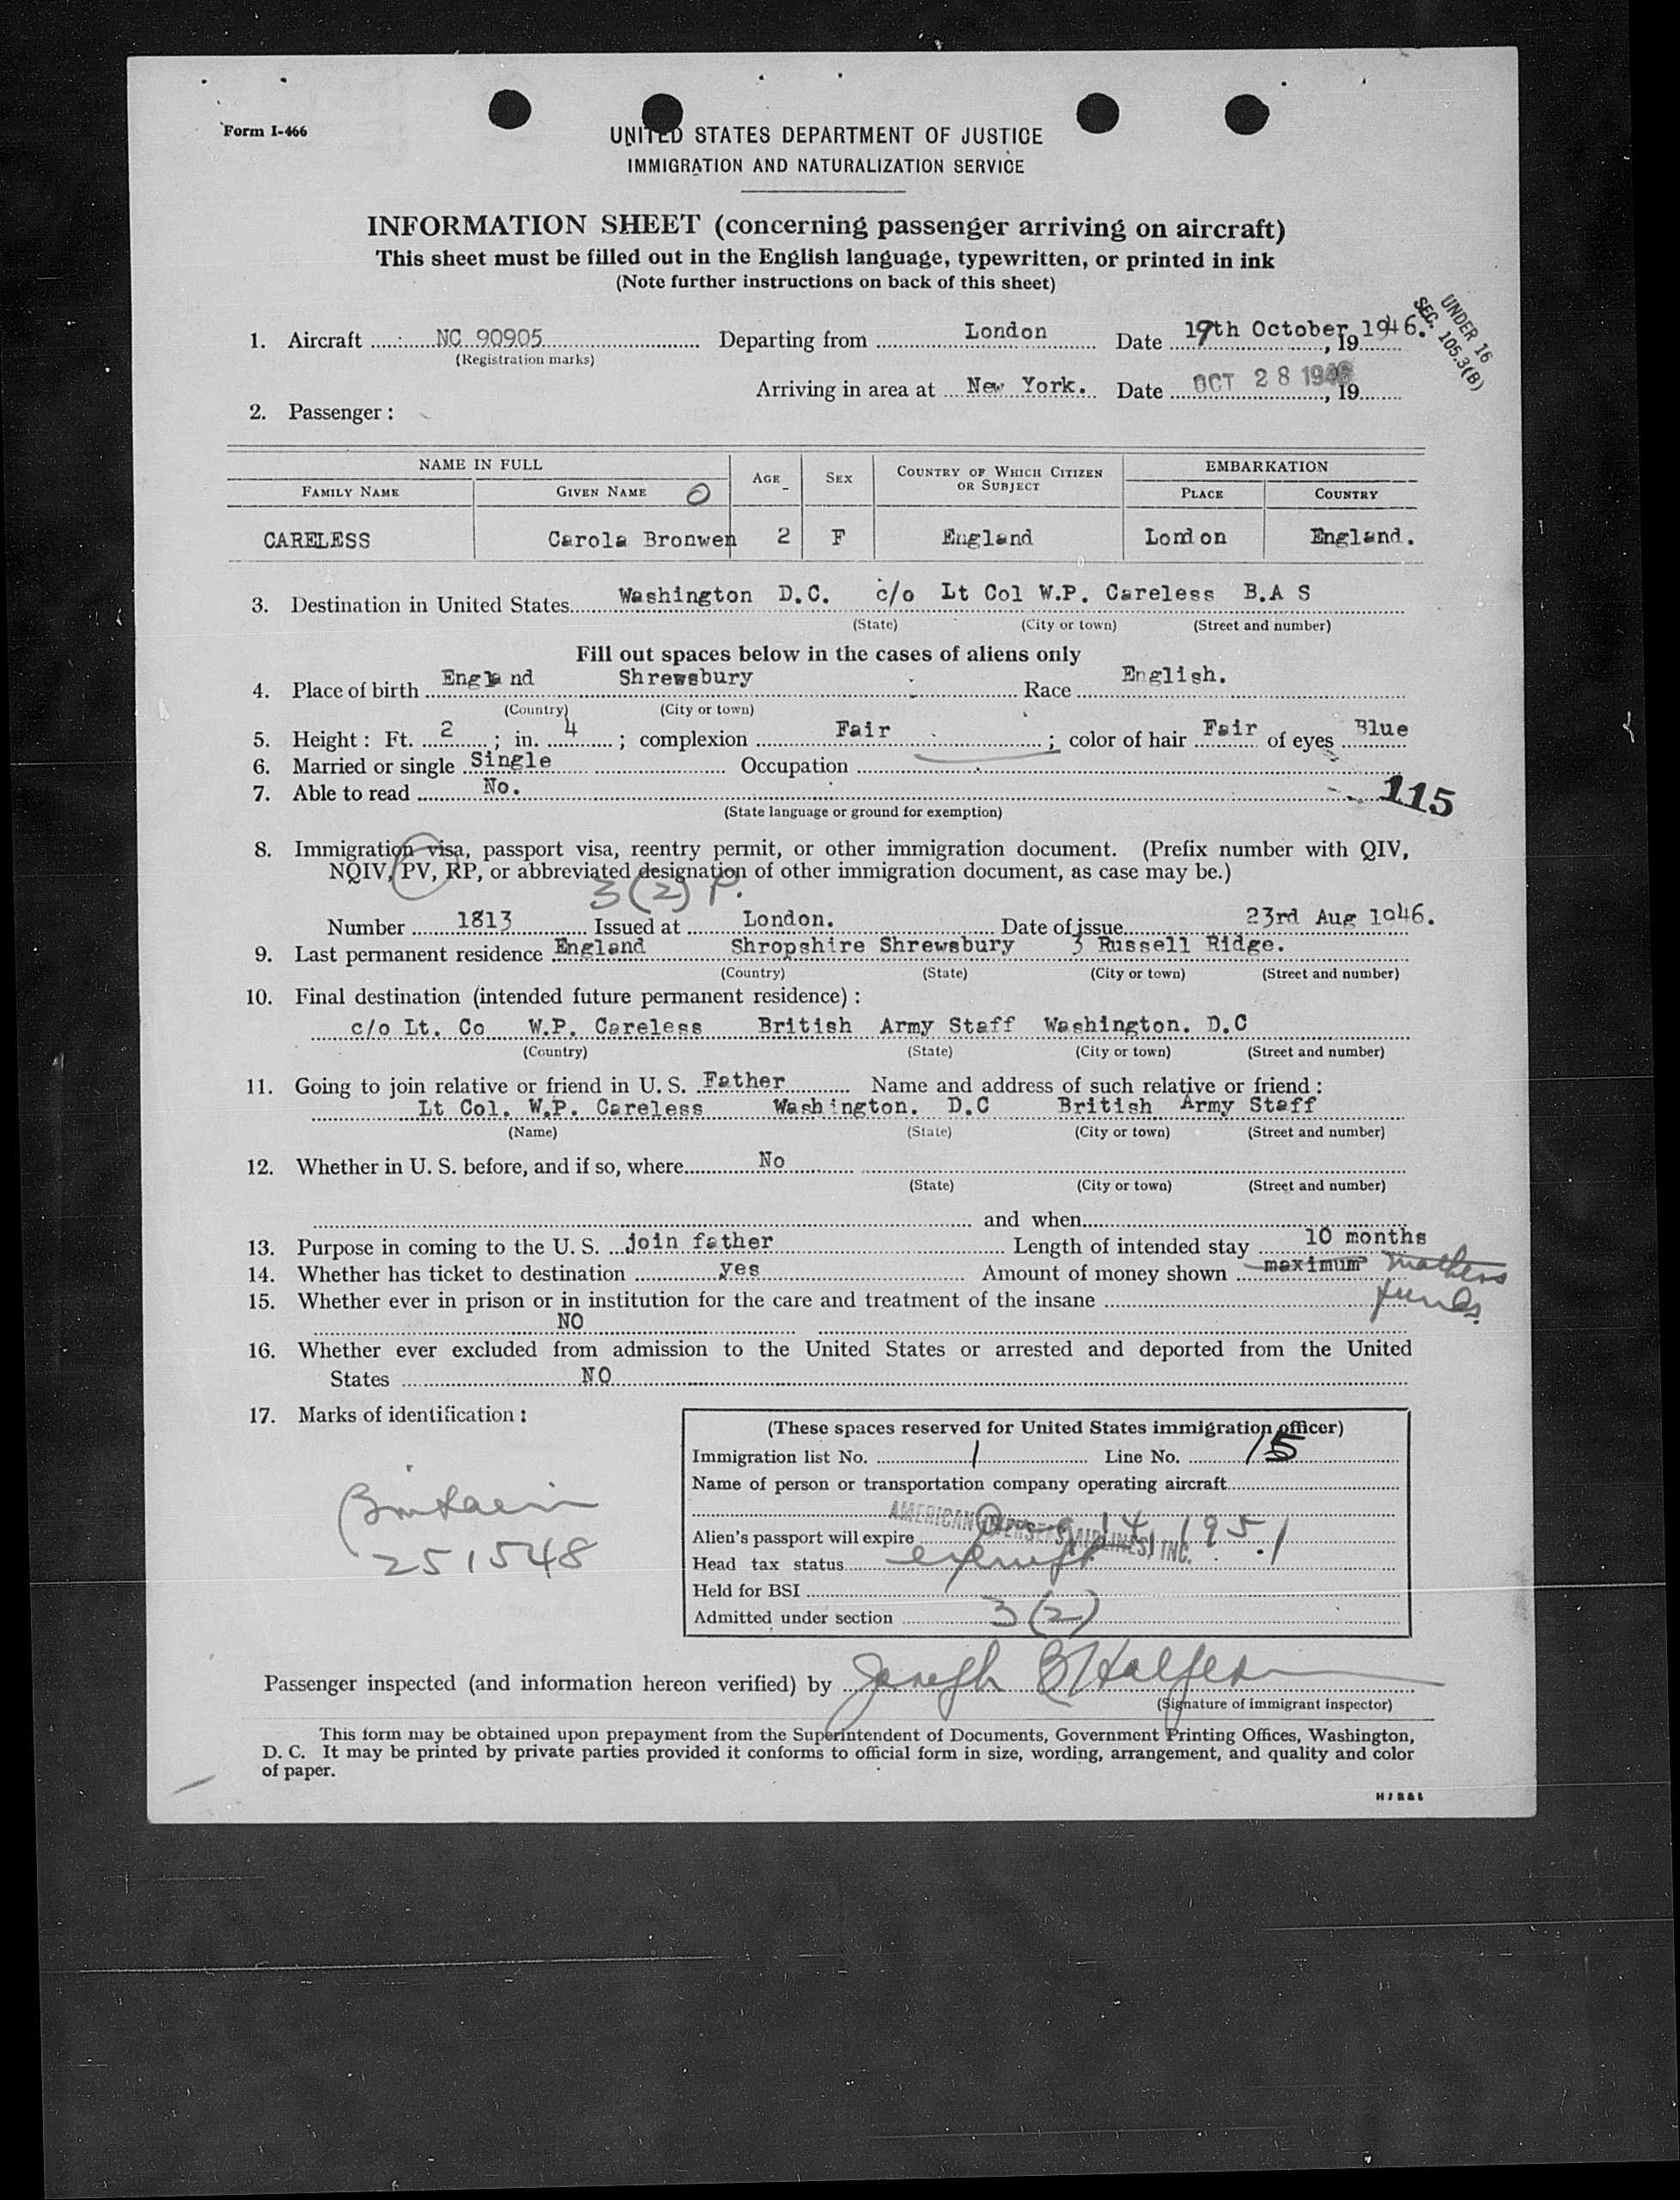 Form I-466
UNITED STATES DEPARTMENT OF JUSTICE
IMMIGRATION AND NATURALIZATION SERVICE
INFORMATION SHEET (concerning passenger arriving on aircraft)
This sheet must be filled out in the English language, typewritten, or printed in ink
(Note further instructions on back of this sheet)
UNDER 16
SEC. 105.3(B)
1. Aircraft NC 90905 Departing from London Date 19th October, 1946.
(Registration marks)
Arriving in area at New York. Date OCT 28 1946, 19
2. Passenger:
NAME IN FULL AGE SEX COUNTRY OF WHICH CITIZEN OR SUBJECT EMBARKATION
FAMILY NAME GIVEN NAME PLACE COUNTRY
CARELESS Carola Bronwen 2 F England London England.
3. Destination in United States Washington D.C. c/o Lt Col W.P. Careless B.A S
(State) (City or town) (Street and number)
Fill out spaces below in the cases of aliens only
4. Place of birth England Shrewsbury Race English.
(Country) (City or town)
5. Height: Ft. 2; in. 4; complexion Fair; color of hair Fair of eyes Blue
6. Married or single Single Occupation
7. Able to read No.
115
(State language or ground for exemption)
8. Immigration visa, passport visa, reentry permit, or other immigration document. (Prefix number with QIV,
NQIV, PV, RP, or abbreviated designation of other immigration document, as case may be.)
3(2) P.
Number 1813 Issued at London. Date of issue 23rd Aug 1946.
9. Last permanent residence England Shropshire Shrewsbury 3 Russell Ridge.
(Country) (State) (City or town) (Street and number)
10. Final destination (intended future permanent residence):
c/o Lt. Co W.P. Careless British Army Staff Washington. D.C
(Country) (State) (City or town) (Street and number)
11. Going to join relative or friend in U. S. Father Name and address of such relative or friend:
Lt Col. W.P. Careless Washington. D.C British Army Staff
(Name) (State) (City or town) (Street and number)
12. Whether in U. S. before, and if so, where No
(State) (City or town) (Street and number)
and when
13. Purpose in coming to the U. S. join father Length of intended stay 10 months
14. Whether has ticket to destination yes Amount of money shown maximum mothers
funds.
15. Whether ever in prison or in institution for the care and treatment of the insane
NO
16. Whether ever excluded from admission to the United States or arrested and deported from the United
States NO
17. Marks of identification:
(These spaces reserved for United States immigration officer)
Immigration list No. 1 Line No. 15
Name of person or transportation company operating aircraft
AMERICAN OVERSEAS AIRLINES, INC.
Alien's passport will expire 14, 1951
Head tax status exempt
Held for BSI
Admitted under section 3(2)
Britain
251548
Passenger inspected (and information hereon verified) by Joseph B Halfern
(Signature of immigrant inspector)
This form may be obtained upon prepayment from the Superintendent of Documents, Government Printing Offices, Washington,
D. C. It may be printed by private parties provided it conforms to official form in size, wording, arrangement, and quality and color
of paper.
HJR&L